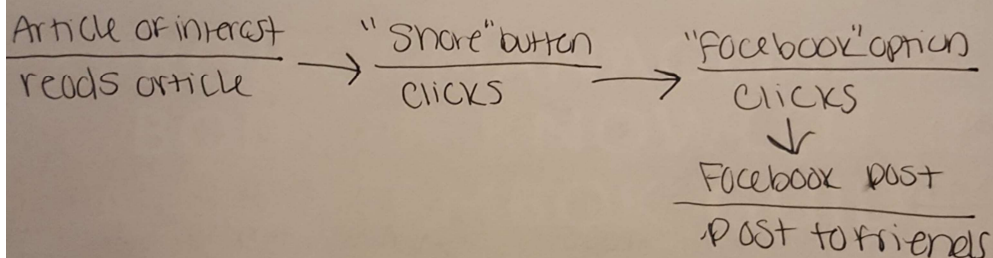 Article of interest
reads article
"Share" button
clicks
"Facebook" option
clicks
Facebook post
post to friends